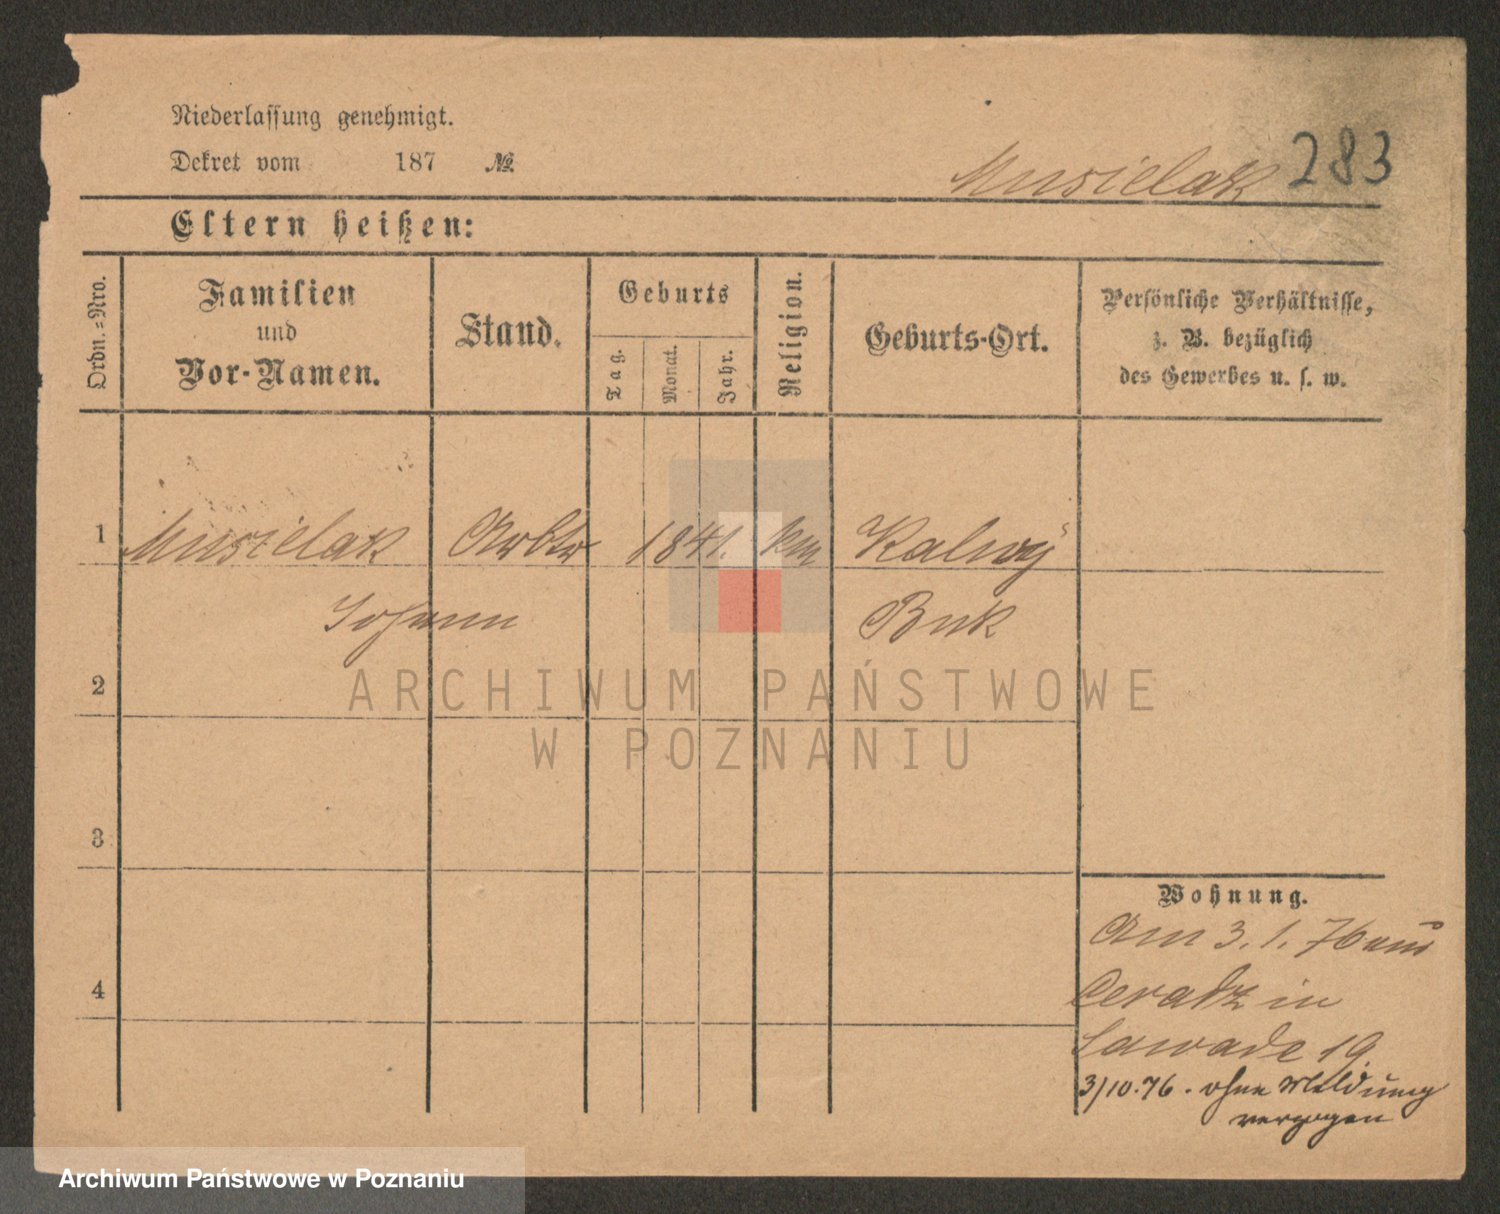 Niederlassung genehmigt.
Dekret vom 187 №
Musielak 283
Eltern heißen:
Ordn.=Nro.
Familien
und
Vor-Namen.
Stand.
Geburts
Tag.
Monat.
Jahr.
Religion.
Geburts-Ort.
Persönliche Verhältnisse,
z. B. bezüglich
des Gewerbes u. s. w.
1 Musielak Arbtr 1841. km Kalwy
Johann Buk
2
ARCHIWUM PAŃSTWOWE
W POZNANIU
3
Wohnung.
Am 3. 1. 76 aus
4
Ceradz in
Sawade 19.
3/10.76. ohne Meldung
verzogen
Archiwum Państwowe w Poznaniu